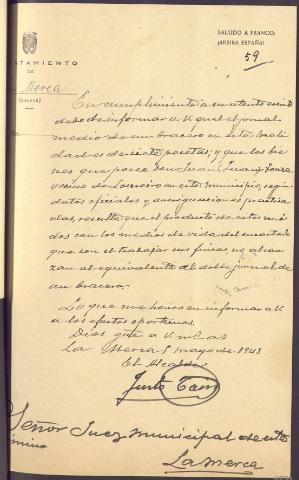 SALUDO A FRANCO:
¡ARRIBA ESPAÑA!
59
NTAMIENTO
DE
Merca
(ORENSE)
En cumplimiento a su atento escrito
debo de informar a V. que el jornal
medio de un bracero en esta locali
dad es de siete pesetas, y que los bie
nes que posee Don Juan
vecino de en este municipio, según
datos oficiales y averiguaciones practica
das, resulta que el producto de estos uni
dos con los medios de vida del
que son el trabajar sus fincas no alcan
zan al equivalente del doble jornal de
un bracero.
Lo que me honro en informar a V.
a los efectos oportunos.
Dios gde a V. m. as
La Merca 5 mayo de 1943
El Alcalde
Justo
Señor Juez municipal de este
término
La Merca